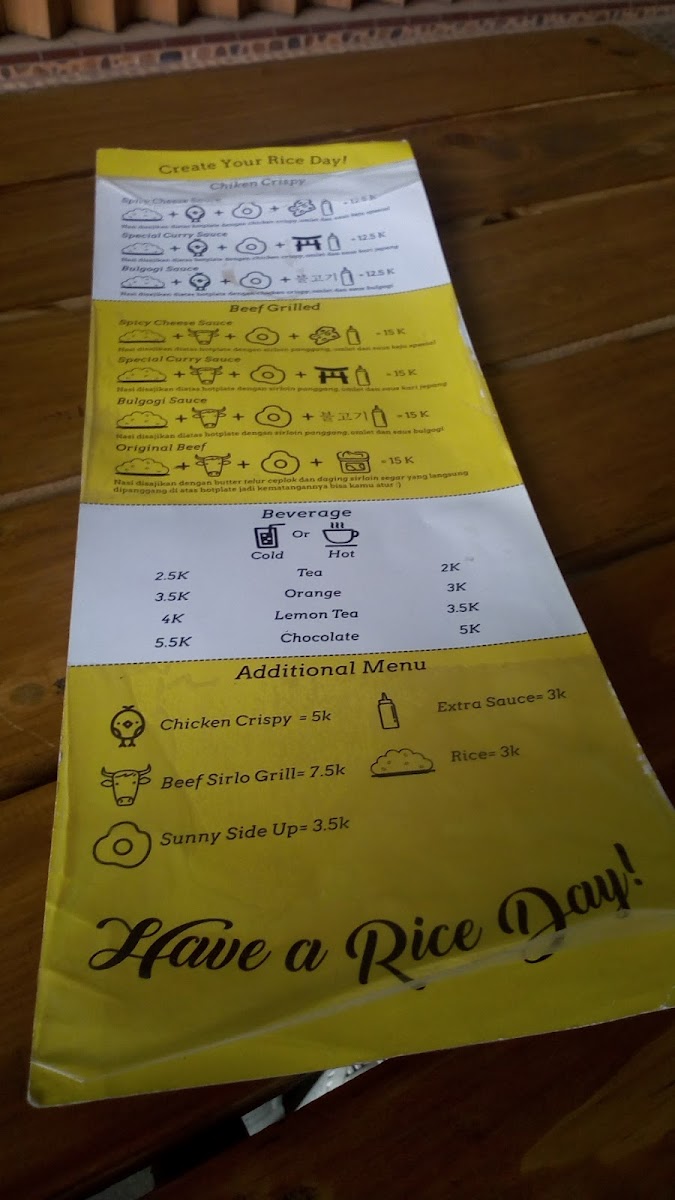 Create Your Rice Day!
Chiken Crispy
Spicy Cheese Sauce
+ + + = 12.5 K
Nasi disajikan diatas hotplate dengan chicken crispy, omlet dan saus keju spesial
Special Curry Sauce
+ + + = 12.5 K
Nasi disajikan diatas hotplate dengan chicken crispy, omlet dan saus kari jepang
Bulgogi Sauce
+ + + 불고기 = 12.5 K
Nasi disajikan diatas hotplate dengan chicken crispy, omlet dan saus bulgogi
Beef Grilled
Spicy Cheese Sauce
+ + + = 15 K
Nasi disajikan diatas hotplate dengan sirloin panggang, omlet dan saus keju spesial
Special Curry Sauce
+ + + = 15 K
Nasi disajikan diatas hotplate dengan sirloin panggang, omlet dan saus kari jepang
Bulgogi Sauce
+ + + 불고기 = 15 K
Nasi disajikan diatas hotplate dengan sirloin panggang, omlet dan saus bulgogi
Original Beef
+ + + = 15 K
Nasi disajikan dengan butter telur ceplok dan daging sirloin segar yang langsung
dipanggang di atas hotplate jadi kematangannya bisa kamu atur :)
Beverage
Or
Cold Hot
2.5K Tea 2K
3.5K Orange 3K
4K Lemon Tea 3.5K
5.5K Chocolate 5K
Additional Menu
Chicken Crispy = 5k Extra Sauce= 3k
Beef Sirlo Grill= 7.5k Rice= 3k
Sunny Side Up= 3.5k
Have a Rice Day!